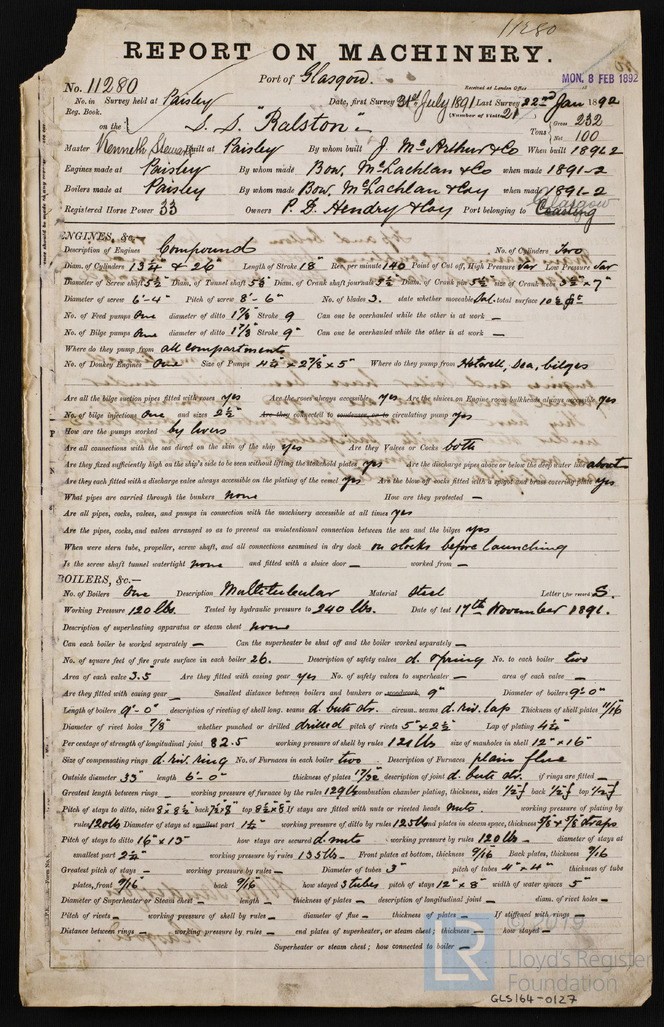 11280
REPORT ON MACHINERY.
No. 11280 Port of Glasgow. Received at London Office MON. 8 FEB 1892
No. in Survey held at Paisley Date, first Survey 31st July 1891 Last Survey 22nd Jan 1892
Reg. Book. (Number of Visits 21)
on the S. S. "Ralston" Tons Gross 232 Net 100
Master Kenneth Stewart Built at Paisley By whom built J. McArthur & Co When built 1891-2
Engines made at Paisley By whom made Bow, McLachlan & Co when made 1891-2
Boilers made at Paisley By whom made Bow, McLachlan & Coy when made 1891-2
Registered Horse Power 33 Owners P. D. Hendry & Coy Port belonging to Coasting Glasgow
ENGINES, &c.—
Description of Engines Compound No. of Cylinders Two
Diam. of Cylinders 13¾" & 26" Length of Stroke 18" Rev. per minute 140 Point of Cut off, High Pressure Var Low Pressure Var
Diameter of Screw shaft Diam. of Tunnel shaft Diam. of Crank shaft journals Diam. of Crank pin size of Crank webs
Diameter of screw 6'-4" Pitch of screw 8'-6" No. of blades 3. state whether moveable total surface
No. of Feed pumps One diameter of ditto 1⅞ Stroke 9 Can one be overhauled while the other is at work —
No. of Bilge pumps One diameter of ditto 1⅞" Stroke 9" Can one be overhauled while the other is at work —
Where do they pump from all compartments
No. of Donkey Engines One Size of Pumps 4½" x 2⅞ x 5" Where do they pump from Hotwell, Sea, bilges
Are all the bilge suction pipes fitted with roses yes Are the roses always accessible yes Are the sluices on Engine room bulkheads always accessible yes
No. of bilge injections One and sizes 2½" Are they connected to condenser, or to circulating pump yes
How are the pumps worked by levers
Are all connections with the sea direct on the skin of the ship yes Are they Valves or Cocks both
Are they fixed sufficiently high on the ship's side to be seen without lifting the stokehold plates yes Are the discharge pipes above or below the deep water line above
Are they each fitted with a discharge valve always accessible on the plating of the vessel yes Are the blow off cocks fitted with a spigot and brass covering plate yes
What pipes are carried through the bunkers none How are they protected —
Are all pipes, cocks, valves, and pumps in connection with the machinery accessible at all times yes
Are the pipes, cocks, and valves arranged so as to prevent an unintentional connection between the sea and the bilges yes
When were stern tube, propeller, screw shaft, and all connections examined in dry dock on stocks before launching
Is the screw shaft tunnel watertight none and fitted with a sluice door — worked from —
BOILERS, &c.—
No. of Boilers One Description Multitubular Material Steel Letter (for record) S.
Working Pressure 120 lbs. Tested by hydraulic pressure to 240 lbs. Date of test 17th November 1891.
Description of superheating apparatus or steam chest none
Can each boiler be worked separately — Can the superheater be shut off and the boiler worked separately —
No. of square feet of fire grate surface in each boiler 26. Description of safety valves d. Spring No. to each boiler two
Area of each valve 3.5 Are they fitted with easing gear yes No. of safety valves to superheater — area of each valve —
Are they fitted with easing gear — Smallest distance between boilers and bunkers or woodwork 9" Diameter of boilers 9'-0"
Length of boilers 9'-0" description of riveting of shell long. seams d. butt str. circum. seams d. riv. lap Thickness of shell plates 11/16
Diameter of rivet holes ⅞ whether punched or drilled drilled pitch of rivets 5" & 2½ Lap of plating 4¼"
Percentage of strength of longitudinal joint 82.5 working pressure of shell by rules 124 lbs size of manholes in shell 12" x 16"
Size of compensating rings d. riv. ring No. of Furnaces in each boiler two Description of Furnaces plain flue
Outside diameter 33" length 6'-0" thickness of plates 17/32 description of joint d. butt str. if rings are fitted —
Greatest length between rings — working pressure of furnace by the rules 129 lbs combustion chamber plating, thickness, sides ½ back ½ top ½
Pitch of stays to ditto, sides 8" x 8½ back top 8½ x 8½ If stays are fitted with nuts or riveted heads nuts. working pressure of plating by
rules 120 lbs Diameter of stays at smallest part 1¼ working pressure of ditto by rules 125 lbs end plates in steam space, thickness ⅝ & ⅞ straps
Pitch of stays to ditto 16" x 15" how stays are secured d. nuts working pressure by rules 120 lbs. diameter of stays at
smallest part 2½" working pressure by rules 135 lbs. Front plates at bottom, thickness 9/16 Back plates, thickness 9/16
Greatest pitch of stays — working pressure by rules — Diameter of tubes 3" pitch of tubes 4" x 4" thickness of tube
plates, front 9/16 back 9/16 how stayed s. tubes pitch of stays 12" x 8" width of water spaces 5"
Diameter of Superheater or Steam chest — length — thickness of plates — description of longitudinal joint — diam. of rivet holes —
Pitch of rivets — working pressure of shell by rules — diameter of flue — thickness of plates — If stiffened with rings —
Distance between rings — working pressure by rules — end plates of superheater, or steam chest; thickness — how stayed —
Superheater or steam chest; how connected to boiler —
© 2019
LR Lloyd's Register
Foundation
GLS164-0127